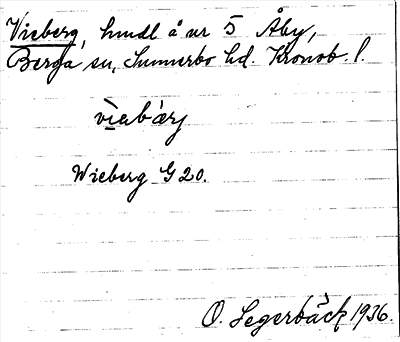 Vieberg, hmdl å nr 5 Åby,
Berga sn, Sunnerbo hd. Kronob. l.
vìabærj
Wieberg G 20.
O. Segerbäck 1936.